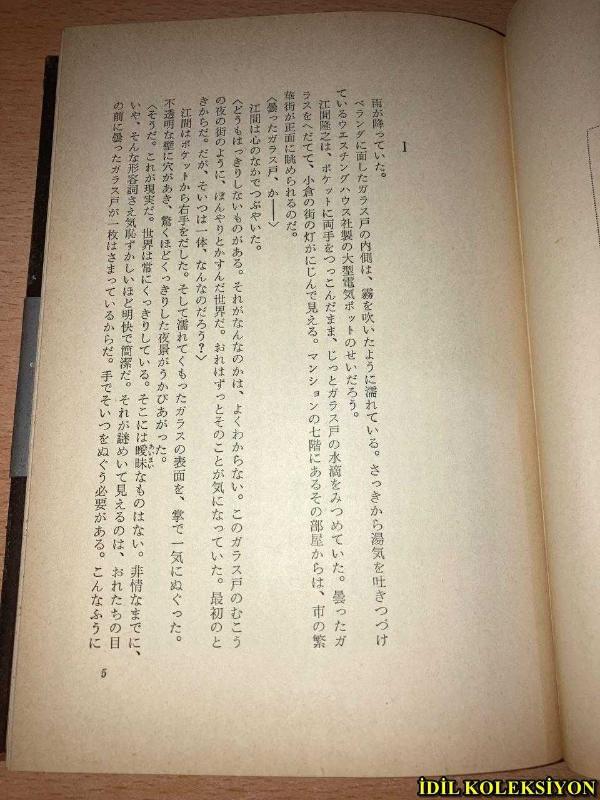 1
雨が降っていた。
ベランダに面したガラス戸の内側は、霧を吹いたように濡れている。さっきから湯気を吐きつづけ
ているウエスチングハウス社製の大型電気ポットのせいだろう。
江間隆之は、ポケットに両手をつっこんだまま、じっとガラス戸の水滴をみつめていた。曇ったガ
ラスをへだてて、小倉の街の灯がにじんで見える。マンションの七階にあるその部屋からは、市の繁
華街が正面に眺められるのだ。
〈曇ったガラス戸、か――〉
江間は心のなかでつぶやいた。
〈どうもはっきりしないものがある。それがなんなのかは、よくわからない。このガラス戸のむこう
の夜の街のように、ぼんやりとかすんだ世界だ。おれはずっとそのことが気になっていた。最初のと
きからだ。だが、そいつは一体、なんなのだろう？〉
江間はポケットから右手をだした。そして濡れてくもったガラスの表面を、掌で一気にぬぐった。
不透明な壁に穴があき、驚くほどくっきりした夜景がうかびあがった。
〈そうだ。これが現実だ。世界は常にくっきりしている。そこには曖昧なものはない。非情なまでに、
あいまい
いや、そんな形容詞さえ気恥ずかしいほど明快で簡潔だ。それが謎めいて見えるのは、おれたちの目
の前に曇ったガラス戸が一枚はさまっているからだ。手でそいつをぬぐう必要がある。こんなふうに
5
İDİL KOLEKSİYON